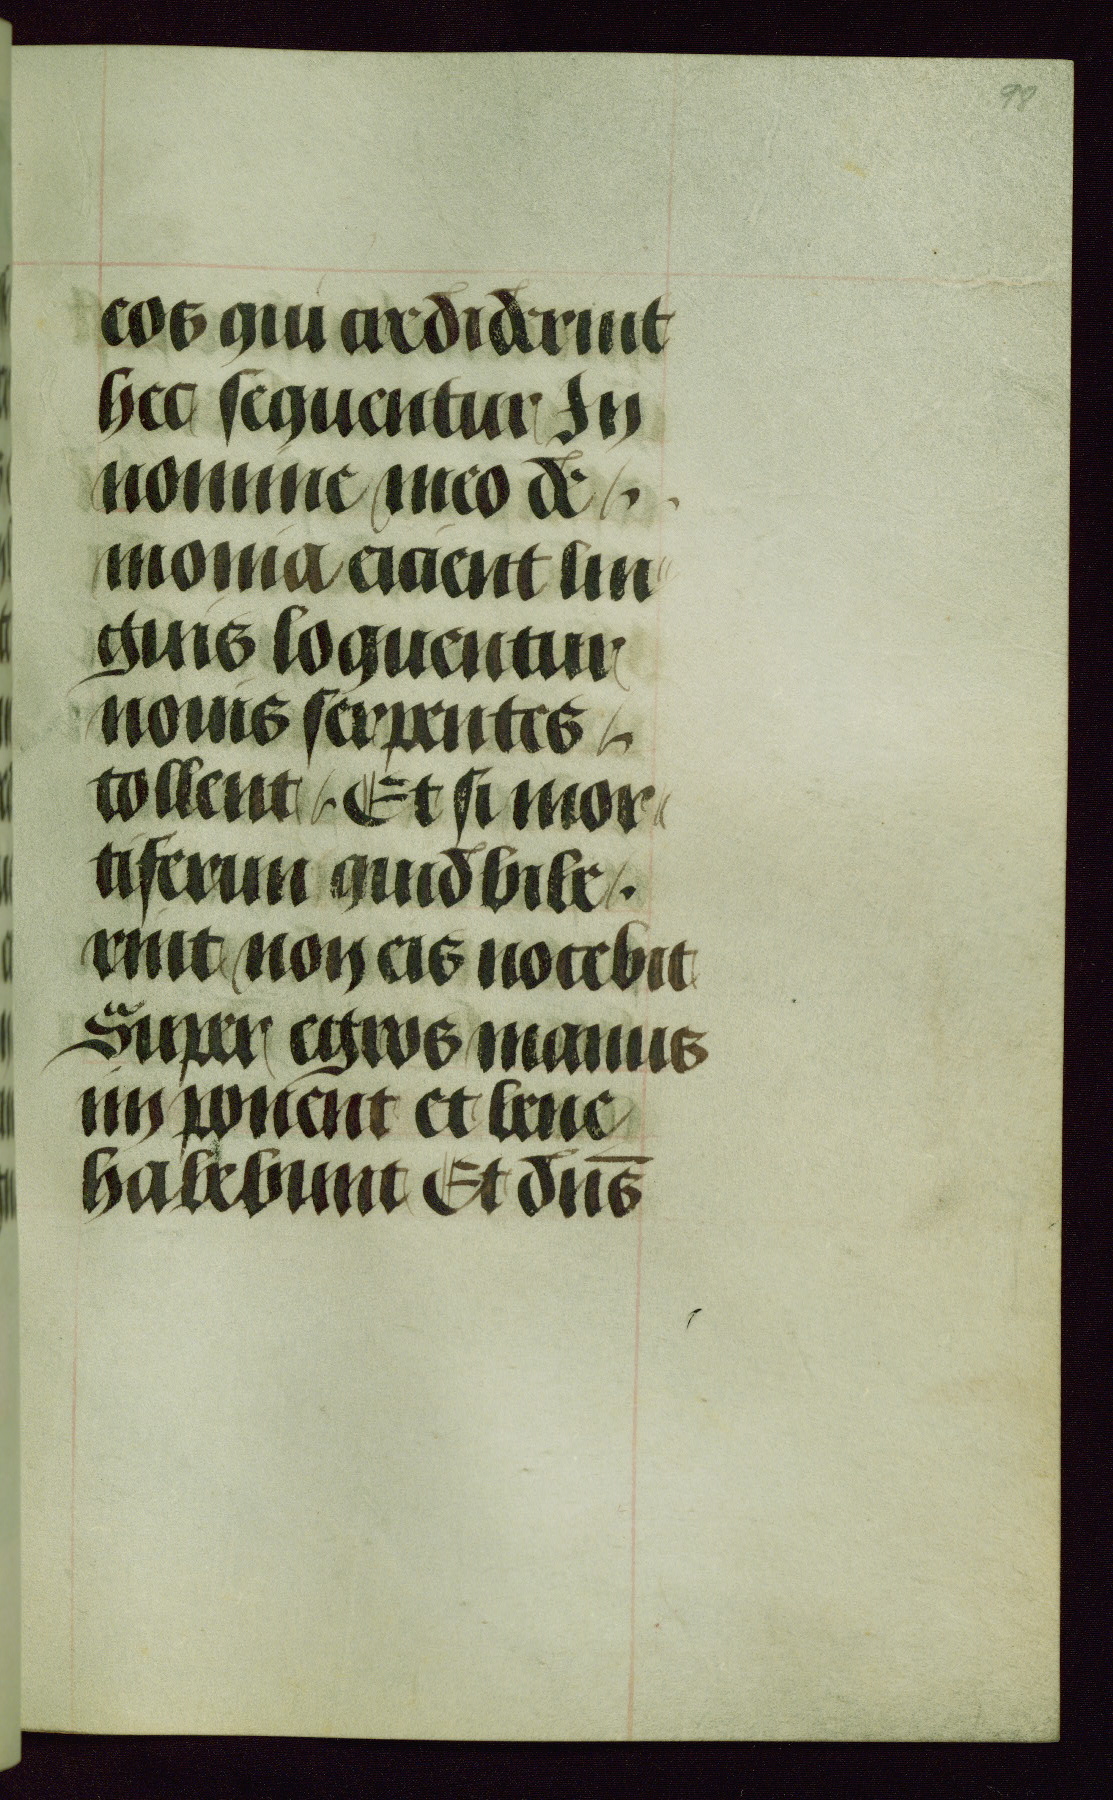 98
eos qui crediderint
hec sequentur In
nomine meo de
monia eicient lin
guis loquentur
nouis serpentes
tollent . Et si mor
tiferum quid bibe
rint non eis nocebit
Super egros manus
im ponent et bene
habebunt Et dn̄s